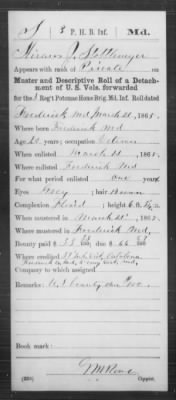 S | 3 P. H. B. Inf. | Md.
Hiram J. Stottlemyer
Appears with rank of Private on
Muster and Descriptive Roll of a Detach-
ment of U. S. Vols. forwarded
for the 3 Reg't Potomac Home Brig. Md. Inf. Roll dated
Frederick Md March 21, 1865.
Where born Frederick Md
Age 20 years; occupation
When enlisted March 21, 1865.
Where enlisted Frederick Md
For what period enlisted one years.
Eyes Grey; hair Brown
Complexion Florid; height 6 ft. in.
When mustered in March 21, 1865.
Where mustered in Frederick Md.
Bounty paid $ 33; due $ 66
Where credited
Company to which assigned
Remarks: U.S. bounty due $100
Book mark:
Copyist.